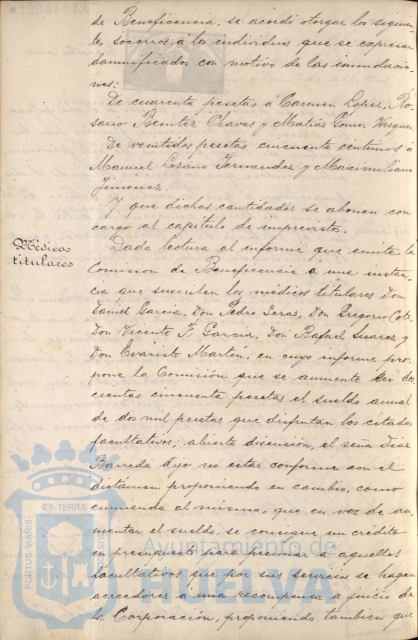 de Beneficencia, se acordó otorgar los siguien-
tes socorros á los individuos que se expresan
damnificados con motivo de las inundacio-
nes:
De cuarenta pesetas á Carmen Lopez, Ro-
sario Benitez Chaves y Matías Gomez Vazquez
De veintidos pesetas cincuenta centimos á
Manuel Lozano Fernandez y Maximiliano
Jimenez.
Y que dichas cantidades se abonen con
cargo al capítulo de imprevistos.
Médicos
titulares
Dada lectura al informe que emite la
Comision de Beneficencia á una instan-
cia que suscriben los médicos titulares Don
Daniel Garcia, Don Pedro Seras, Don Gregorio Coto,
Don Vicente F. Garcia, Don Rafael Suarez y
Don Evaristo Martin, en cuyo informe pro-
pone la Comisión que se aumente en dos
cientas cincuenta pesetas el sueldo anual
de dos mil pesetas que disfrutan los citados
facultativos; abierta discusión, el señor Diaz
Barreda dijo no estar conforme con el
dictámen proponiendo en cambio, como
enmienda al mismo, que en vez de au-
mentar el sueldo, se consigne un crédito
en presupuesto para premiar á aquellos
facultativos que por sus servicios se hagan
acreedores á una recompensa á juicio de
la Corporación, proponiendo tambien que
PORTUS MARIS
ET TERRAE
Ayuntamiento de
HUELVA